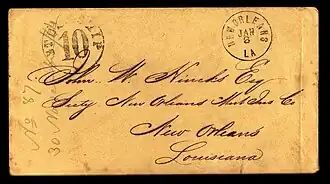 NEW ORLEANS
JAN
8
LA
10
John W. Hincks Esq
Secty New Orleans Mut Ins Co
New Orleans
Louisiana
No 87
30